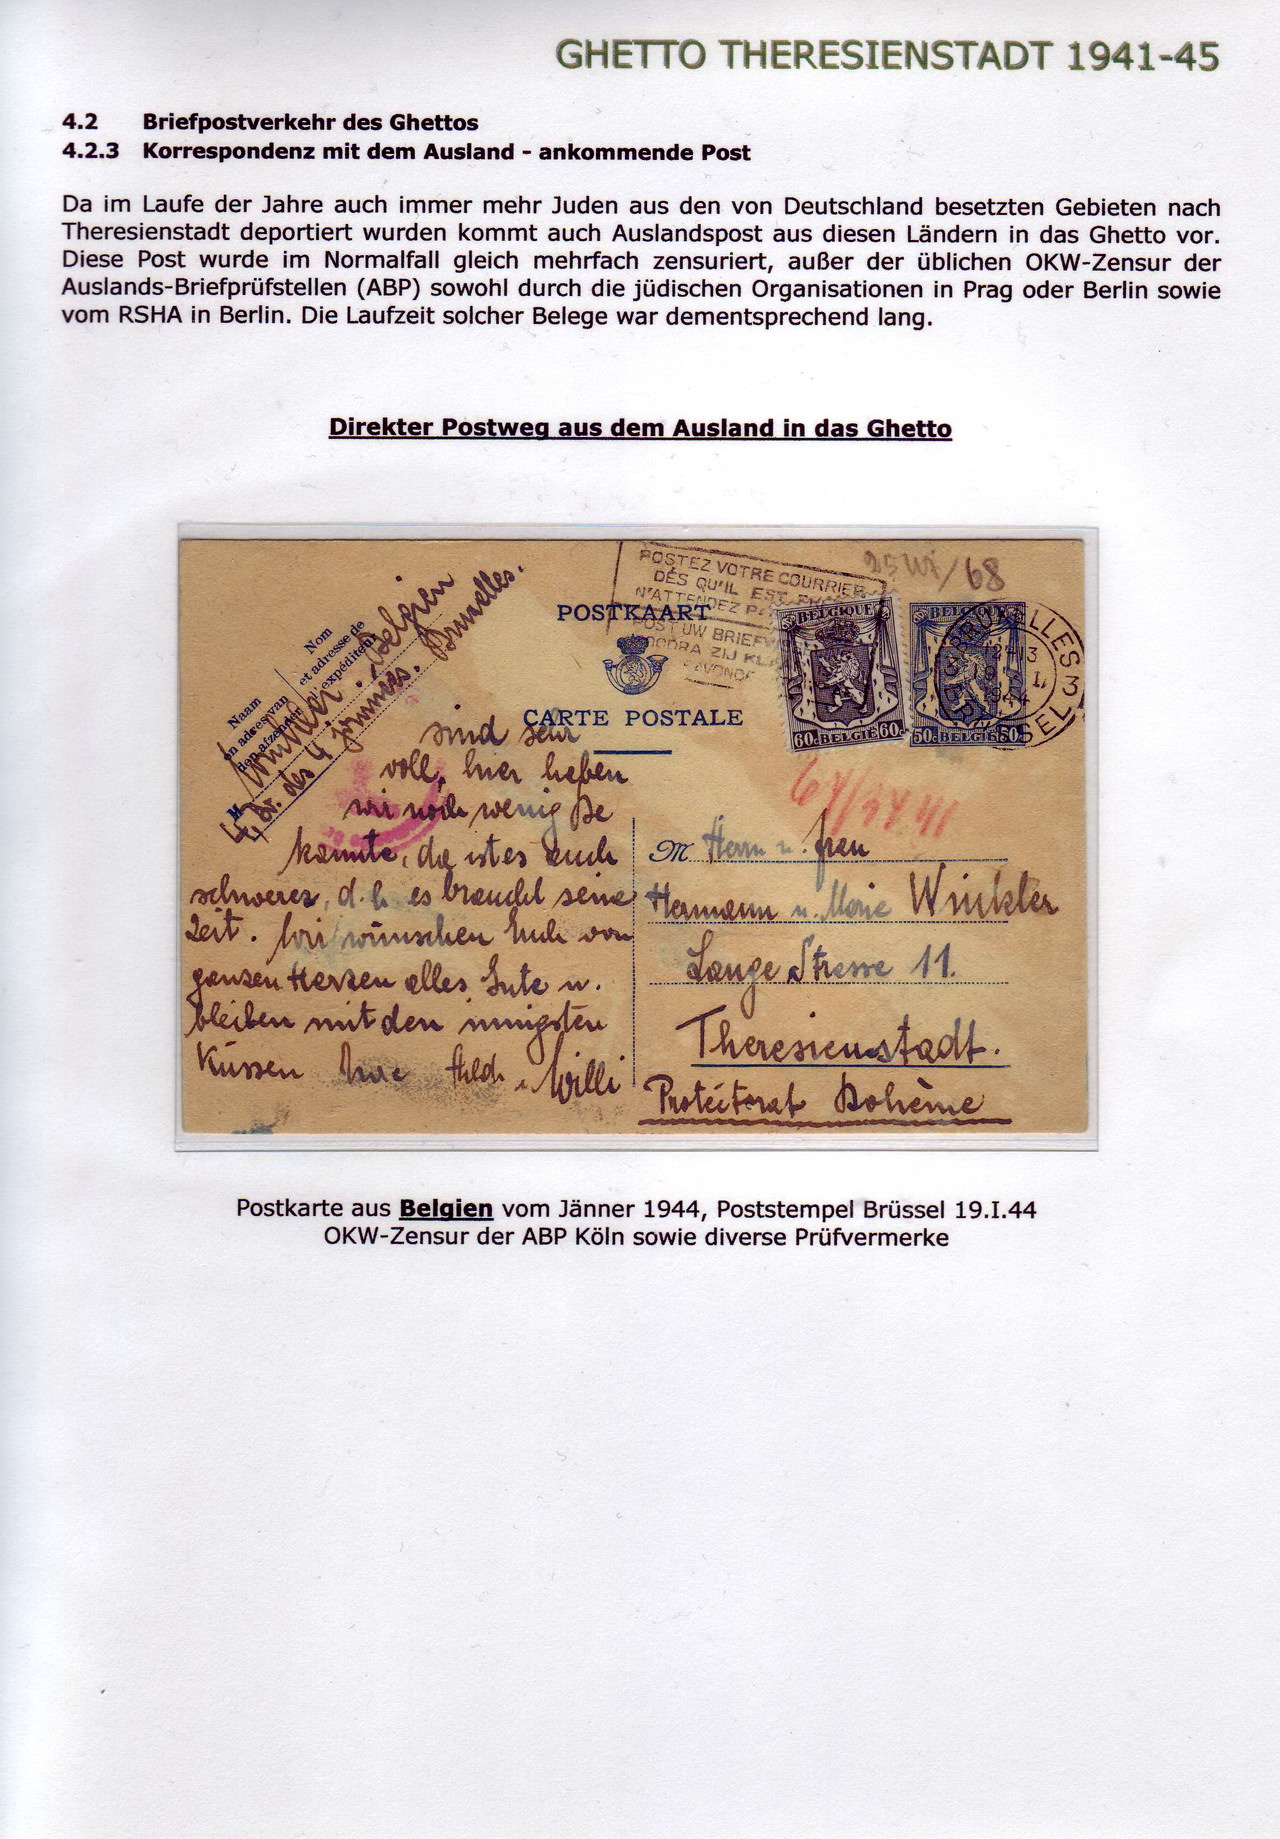 GHETTO THERESIENSTADT 1941-45
4.2 Briefpostverkehr des Ghettos
4.2.3 Korrespondenz mit dem Ausland - ankommende Post
Da im Laufe der Jahre auch immer mehr Juden aus den von Deutschland besetzten Gebieten nach
Theresienstadt deportiert wurden kommt auch Auslandspost aus diesen Ländern in das Ghetto vor.
Diese Post wurde im Normalfall gleich mehrfach zensuriert, außer der üblichen OKW-Zensur der
Auslands-Briefprüfstellen (ABP) sowohl durch die jüdischen Organisationen in Prag oder Berlin sowie
vom RSHA in Berlin. Die Laufzeit solcher Belege war dementsprechend lang.
Direkter Postweg aus dem Ausland in das Ghetto
POSTEZ VOTRE COURRIER
DÈS QU'IL EST
N'ATTENDEZ
POST UW
ZIJ
/68
POSTKAART
CARTE POSTALE
BELGIQUE
60c BELGIE 60c
BELGIQUE
50c BELGIE 50c
BRUXELLES 3
BRUSSEL 3
Nom
et adresse de
l'expéditeur
Naam
en adres van
den afzender
Winkler. Belgien
Bruxelles.
sind sehr
voll, hier heben
wir noch wenig Be
kannte, da ist es auch
schwerer, d.h. es braucht seine
Zeit. Wir wünschen Euch von
ganzen Herzen alles Gute u.
bleiben mit den innigsten
Küssen Willi
M Herrn u. Frau
Hermann u. Marie Winkler
Lange Strasse 11.
Theresienstadt.
Protectorat Bohème
Postkarte aus Belgien vom Jänner 1944, Poststempel Brüssel 19.I.44
OKW-Zensur der ABP Köln sowie diverse Prüfvermerke